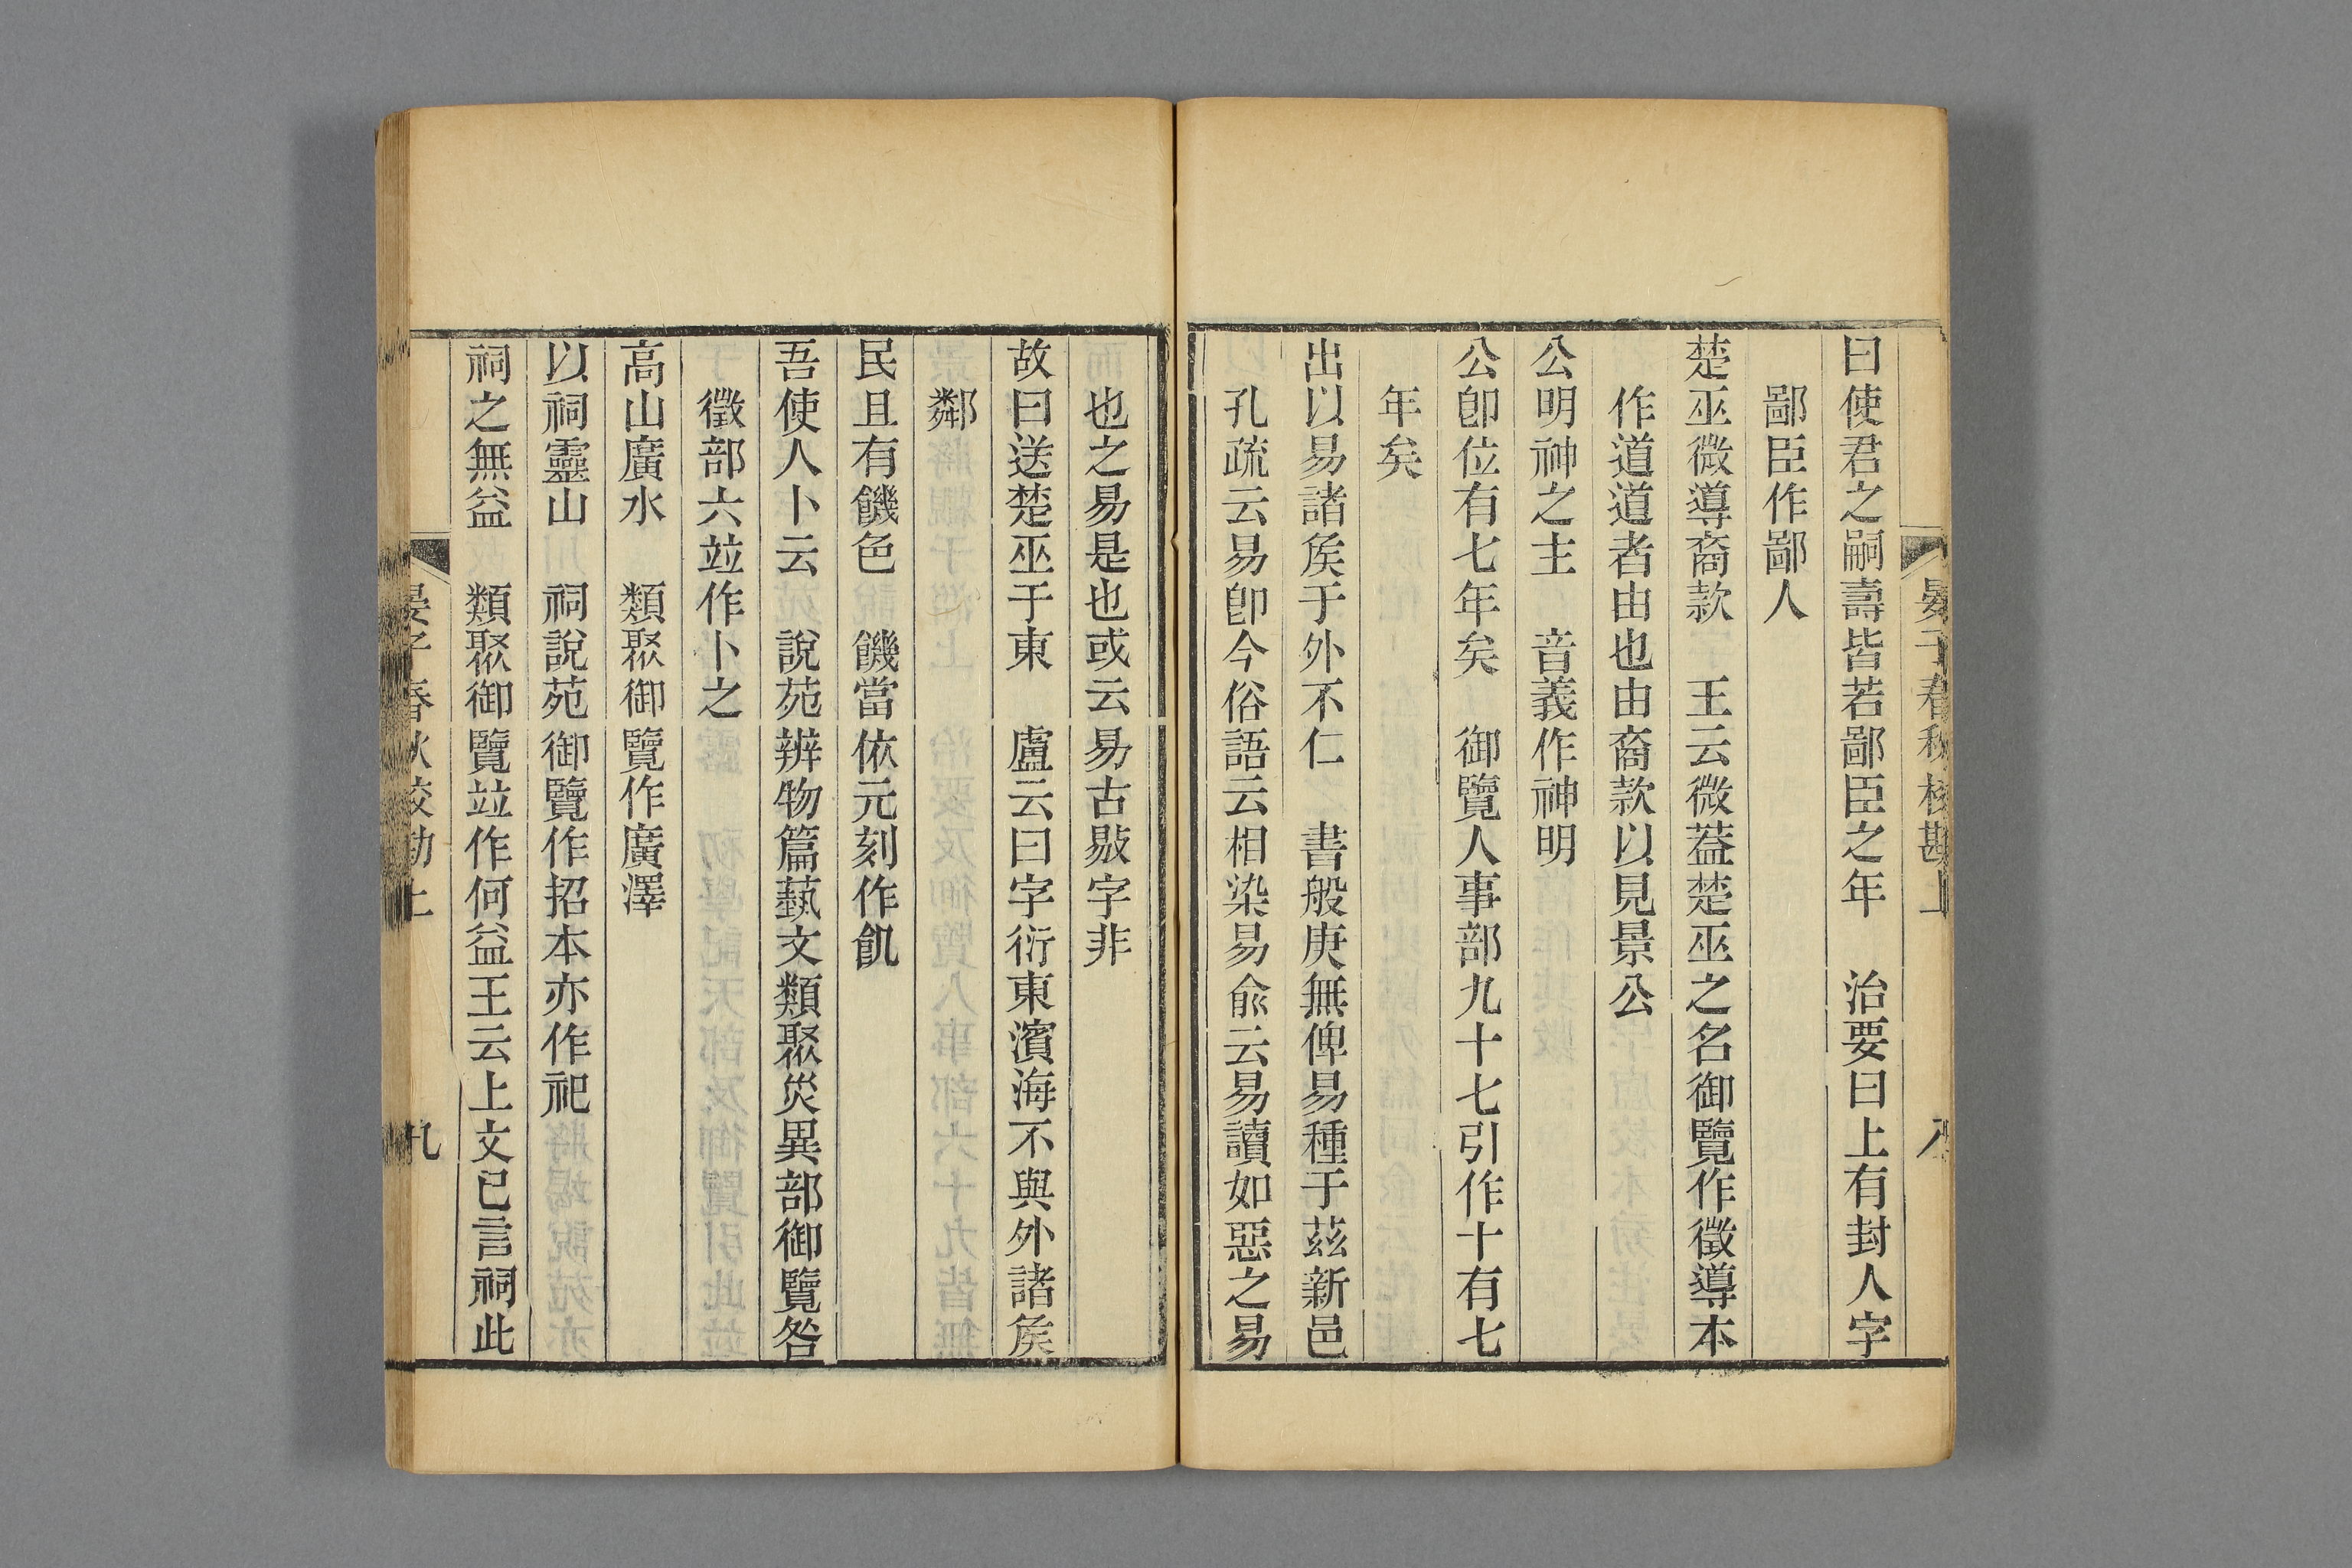 晏子春秋校勘上 八
曰使君之嗣壽皆若鄙臣之年 治要曰上有封人字
鄙臣作鄙人
楚巫微導裔款 王云微葢楚巫之名御覽作徵導本
作道道者由也由裔款以見景公
公明神之主 音義作神明
公卽位有七年矣 御覽人事部九十七引作十有七
年矣
出以易諸矦于外不仁 書般庚無俾易種于茲新邑
孔疏云易卽今俗語云相染易兪云易讀如惡之易
也之易是也或云易古敡字非
故曰送楚巫于東 盧云曰字衍東濱海不與外諸矦
鄰
民且有饑色 饑當依元刻作飢
吾使人卜云 說苑辨物篇藝文類聚災異部御覽咎
徵部六竝作卜之
高山廣水 類聚御覽作廣澤
以祠靈山 祠說苑御覽作招本亦作祀
祠之無益 類聚御覽竝作何益王云上文已言祠此
晏子春秋校勘上 九